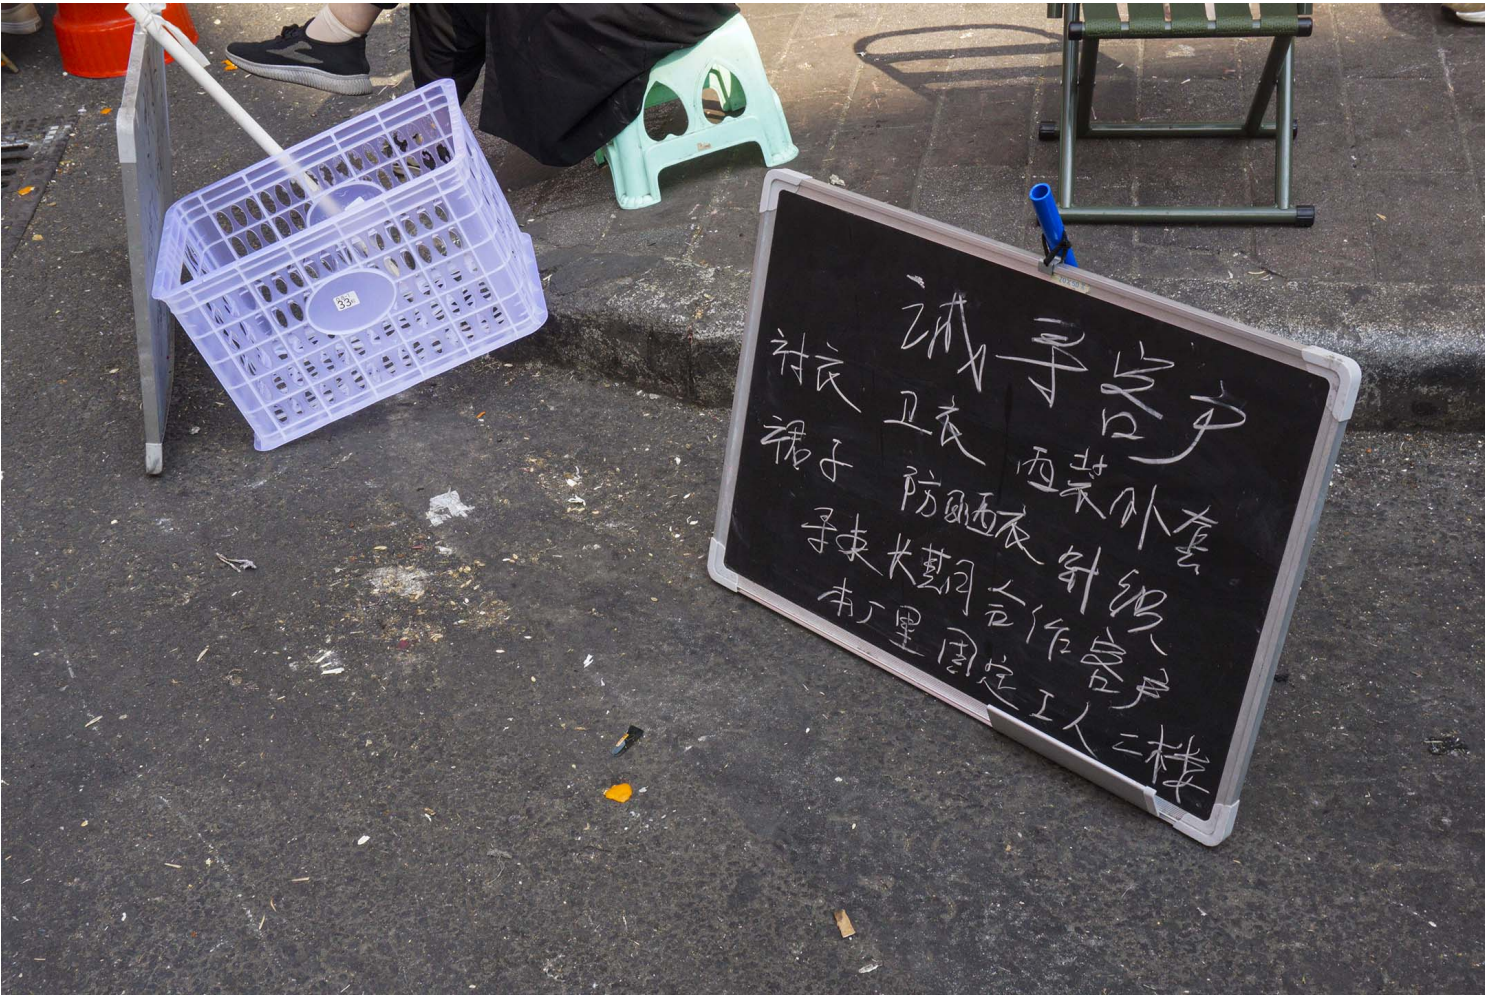 33
诚寻客户
衬衣 卫衣 西装外套
裙子 防晒衣 针织
寻求长期合作客户
本厂里固定工人二楼